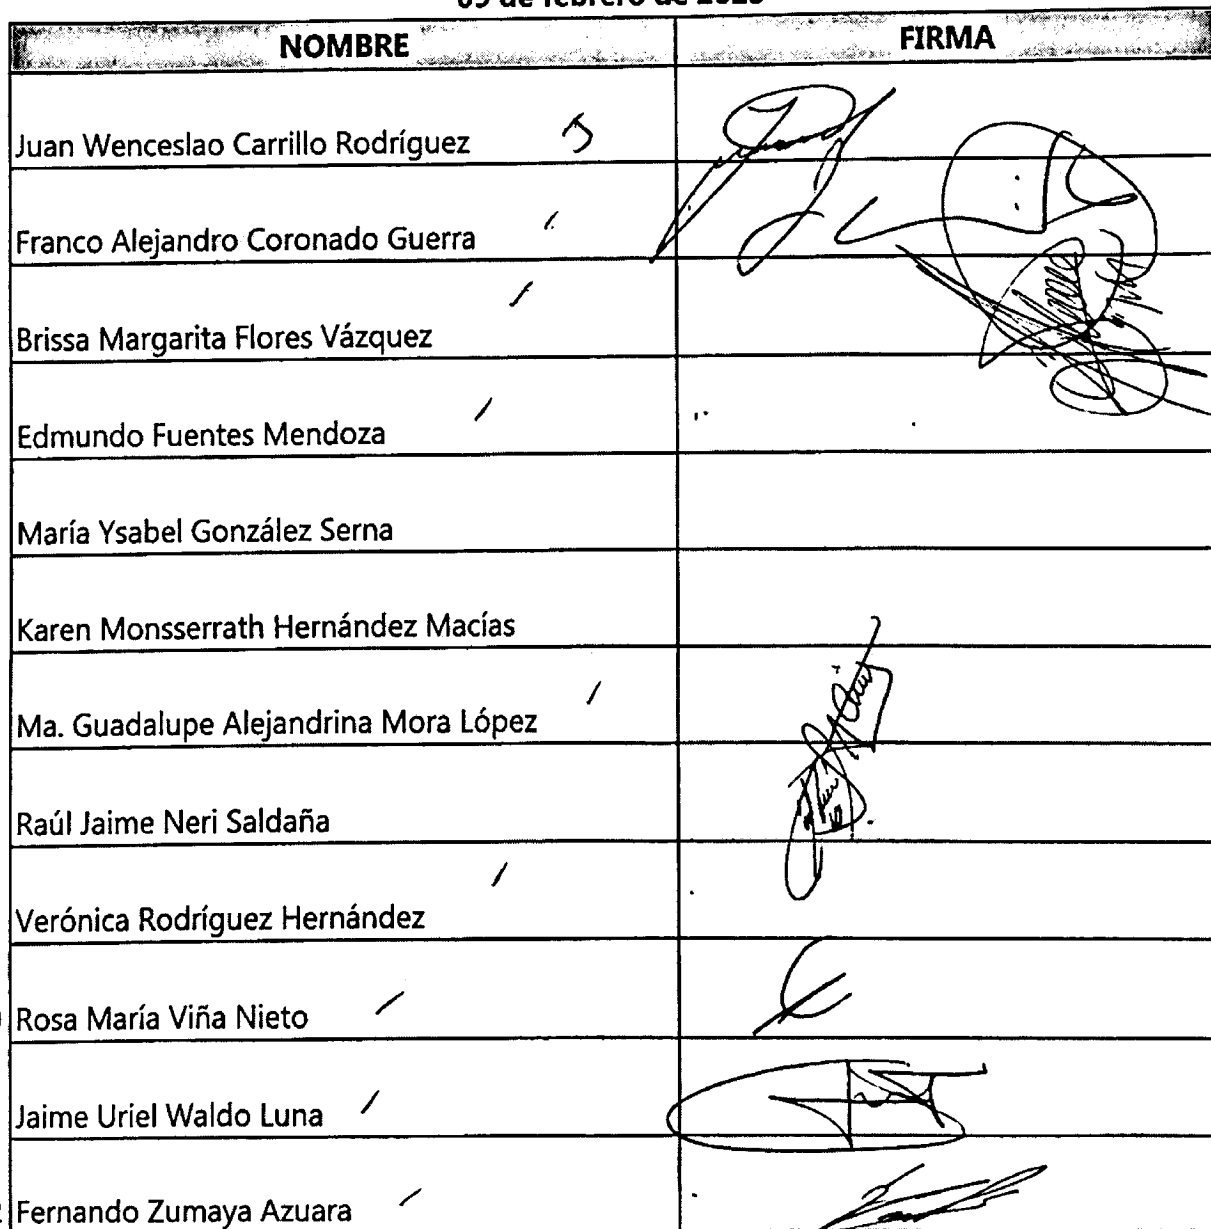 09 de febrero de 2023
NOMBRE FIRMA
Juan Wenceslao Carrillo Rodríguez
Franco Alejandro Coronado Guerra
Brissa Margarita Flores Vázquez
Edmundo Fuentes Mendoza
María Ysabel González Serna
Karen Monsserrath Hernández Macías
Ma. Guadalupe Alejandrina Mora López
Raúl Jaime Neri Saldaña
Verónica Rodríguez Hernández
Rosa María Viña Nieto
Jaime Uriel Waldo Luna
Fernando Zumaya Azuara